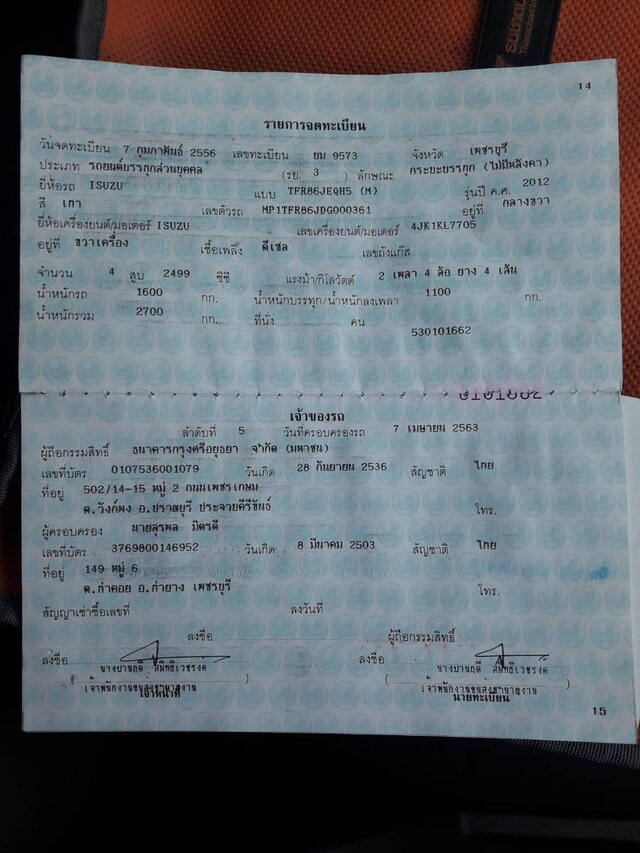 ธนชาต
Thanachart
14
รายการจดทะเบียน
วันจดทะเบียน 7 กุมภาพันธ์ 2556 เลขทะเบียน ยม 9573 จังหวัด เพชรบุรี
ประเภท รถยนต์บรรทุกส่วนบุคคล (รย. 3 ) ลักษณะ กระบะบรรทุก (ไม่มีหลังคา)
ยี่ห้อรถ ISUZU แบบ TFR86JEQH5 (M) รุ่นปี ค.ศ. 2012
สี เทา เลขตัวรถ MP1TFR86JDG000361 อยู่ที่ กลางขวา
ยี่ห้อเครื่องยนต์/มอเตอร์ ISUZU เลขเครื่องยนต์/มอเตอร์ 4JK1KL7705
อยู่ที่ ขวาเครื่อง เชื้อเพลิง ดีเซล เลขถังแก๊ส
จำนวน 4 สูบ 2499 ซีซี แรงม้า/กิโลวัตต์ 2 เพลา 4 ล้อ ยาง 4 เส้น
น้ำหนักรถ 1600 กก. น้ำหนักบรรทุก/น้ำหนักลงเพลา 1100 กก.
น้ำหนักรวม 2700 กก. ที่นั่ง คน
530101662
เจ้าของรถ
ลำดับที่ 5 วันที่ครอบครองรถ 7 เมษายน 2563
ผู้ถือกรรมสิทธิ์ ธนาคารกรุงศรีอยุธยา จำกัด (มหาชน)
เลขที่บัตร 0107536001079 วันเกิด 28 กันยายน 2536 สัญชาติ ไทย
ที่อยู่ 502/14-15 หมู่ 2 ถนนเพชรเกษม
ต.วังก์พง อ.ปราณบุรี ประจวบคีรีขันธ์ โทร.
ผู้ครอบครอง นายสุรพล มิตรดี
เลขที่บัตร 3769800146952 วันเกิด 8 มีนาคม 2503 สัญชาติ ไทย
ที่อยู่ 149 หมู่ 6
ต.ท่าคอย อ.ท่ายาง เพชรบุรี โทร.
สัญญาเช่าซื้อเลขที่ ลงวันที่
ลงชื่อ ผู้ถือกรรมสิทธิ์
ลงชื่อ ลงชื่อ
เจ้าพนักงานขนส่งชำนาญงาน เจ้าพนักงานขนส่งชำนาญงาน
เจ้าหน้าที่ นายทะเบียน
15